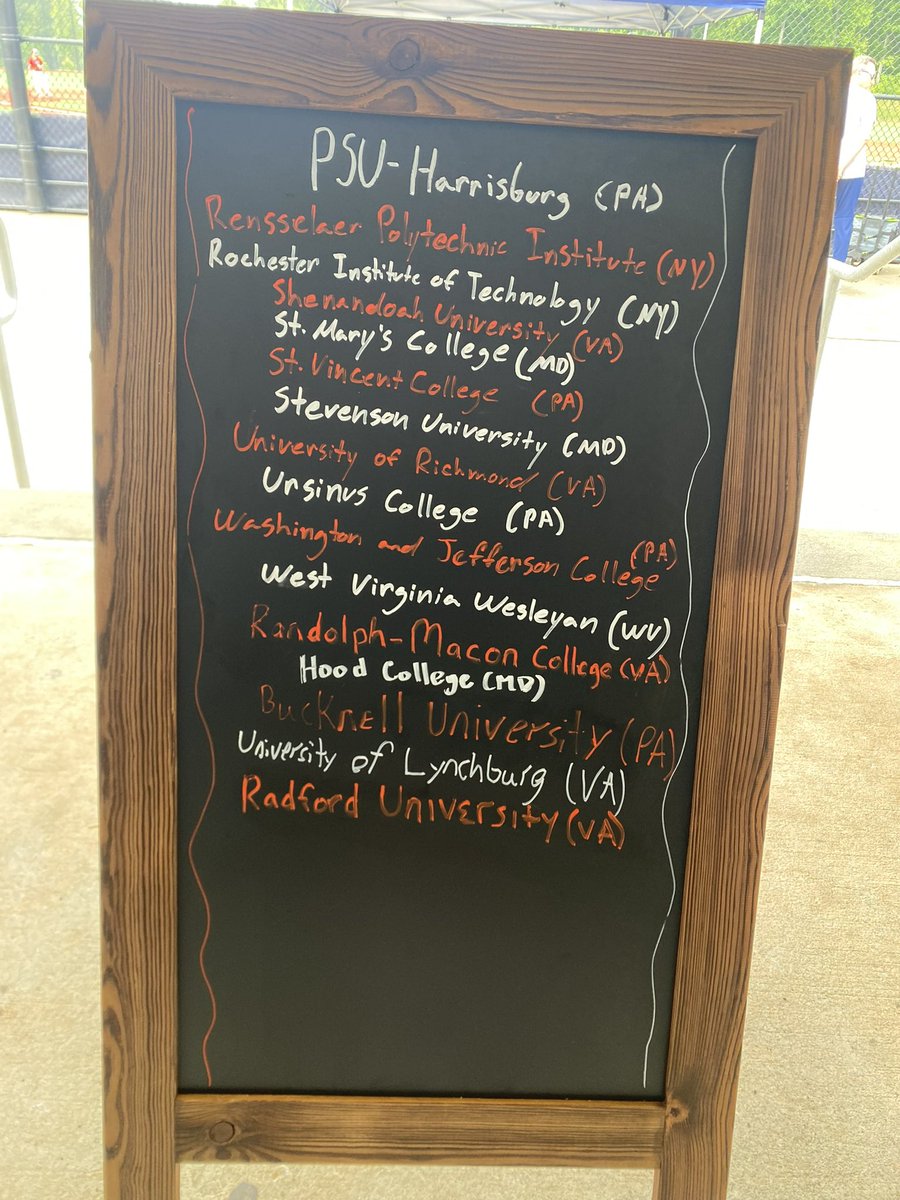 PSU-Harrisburg (PA)
Rensselaer Polytechnic Institute (NY)
Rochester Institute of Technology (NY)
Shenandoah University (VA)
St. Mary's College (MD)
St. Vincent College (PA)
Stevenson University (MD)
University of Richmond (VA)
Ursinus College (PA)
Washington and Jefferson College (PA)
West Virginia Wesleyan (WV)
Randolph-Macon College (VA)
Hood College (MD)
Bucknell University (PA)
University of Lynchburg (VA)
Radford University (VA)